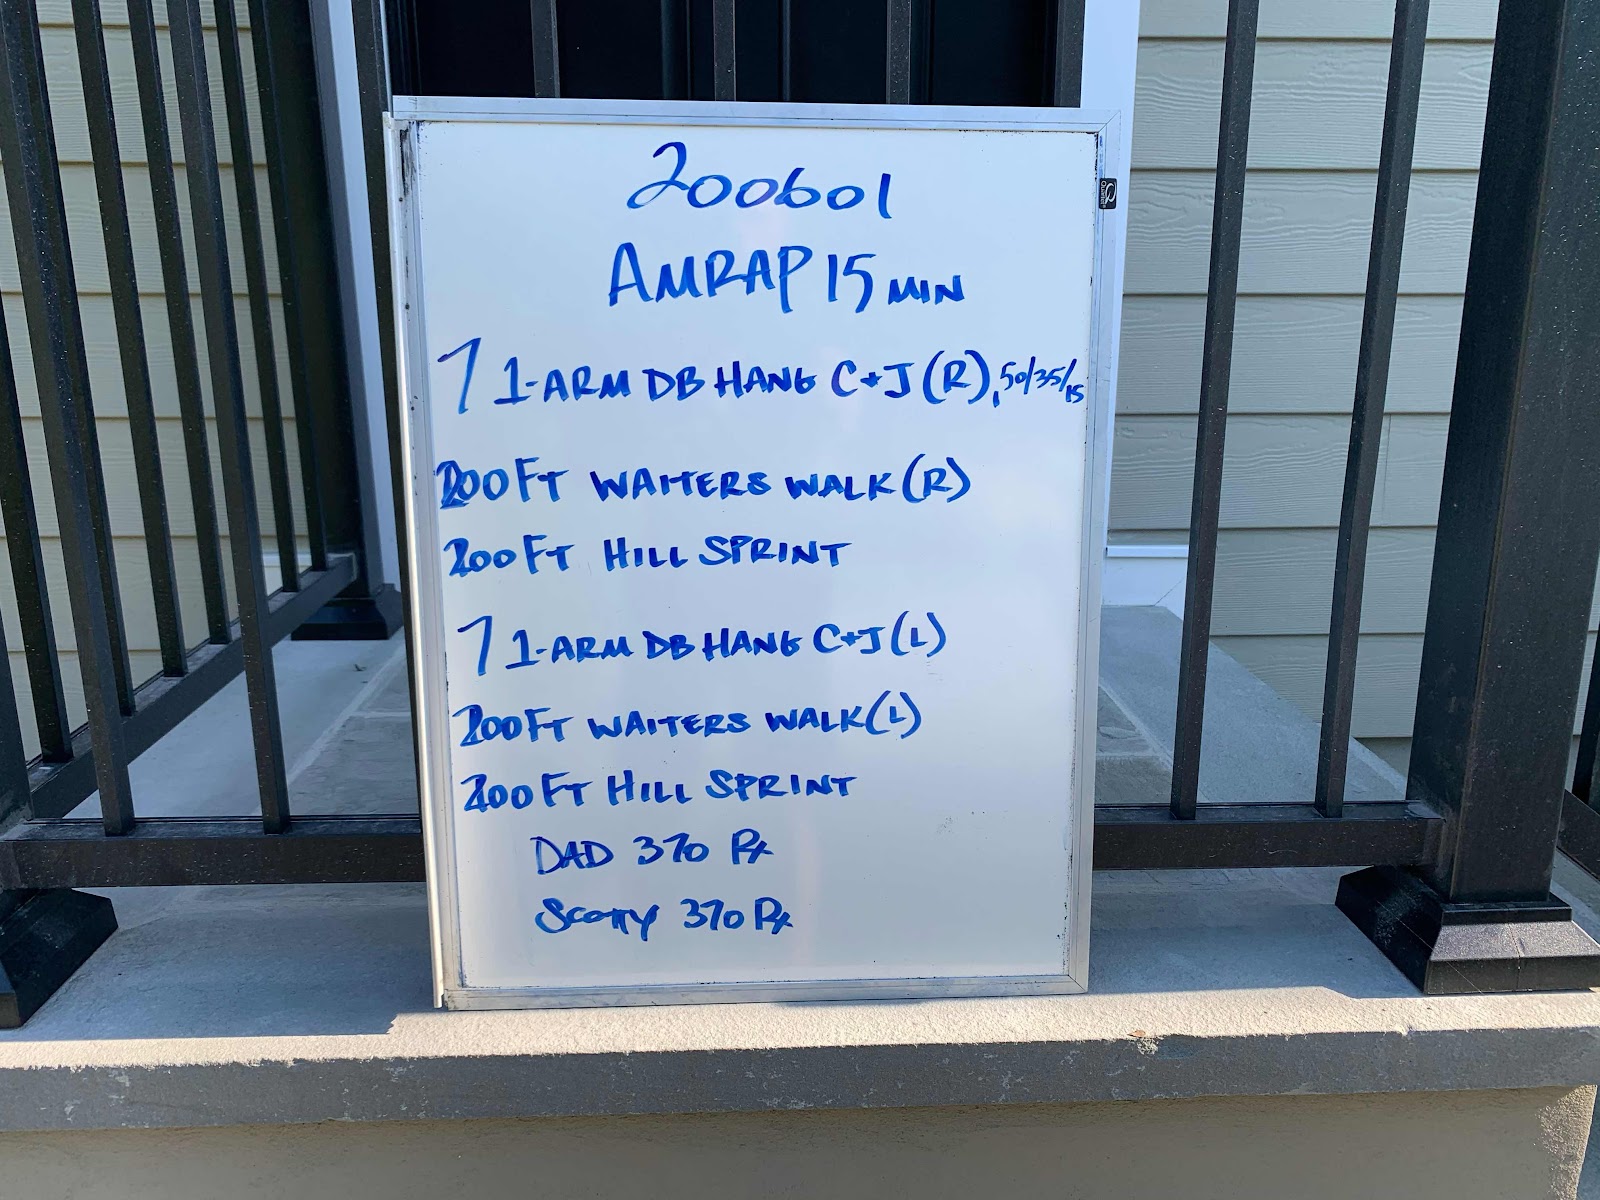 200601
AMRAP 15 MIN
7 1-ARM DB HANG C+J (R), 50/35/15
200FT WAITERS WALK (R)
200FT HILL SPRINT
7 1-ARM DB HANG C+J (L)
200FT WAITERS WALK (L)
200FT HILL SPRINT
DAD 370 Rx
SCOTTY 370 Rx